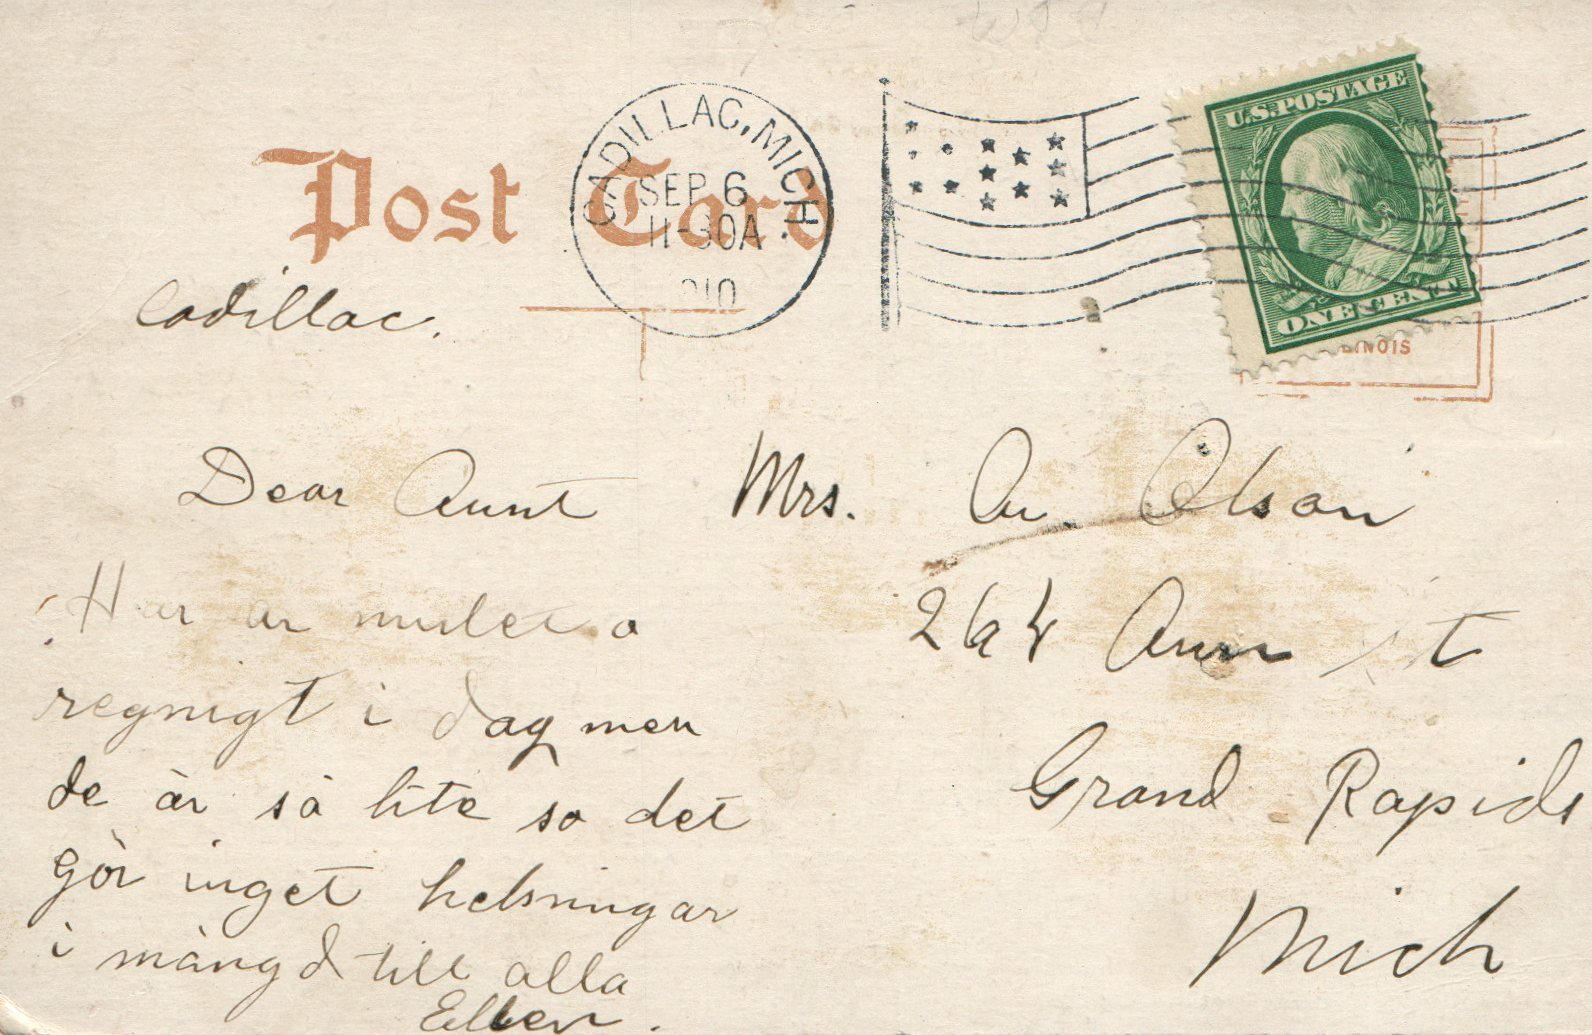 Post Card
CADILLAC, MICH.
SEP 6
11-30A
U.S. POSTAGE
ONE CENT
Cadillac.
Dear Aunt
Har ar mulet o
regnigt i dag men
de är så lite so det
gör inget helsningar
i mängd till alla
Ellen.
Mrs. Au. Olson
264 Ann st
Grand Rapids
Mich